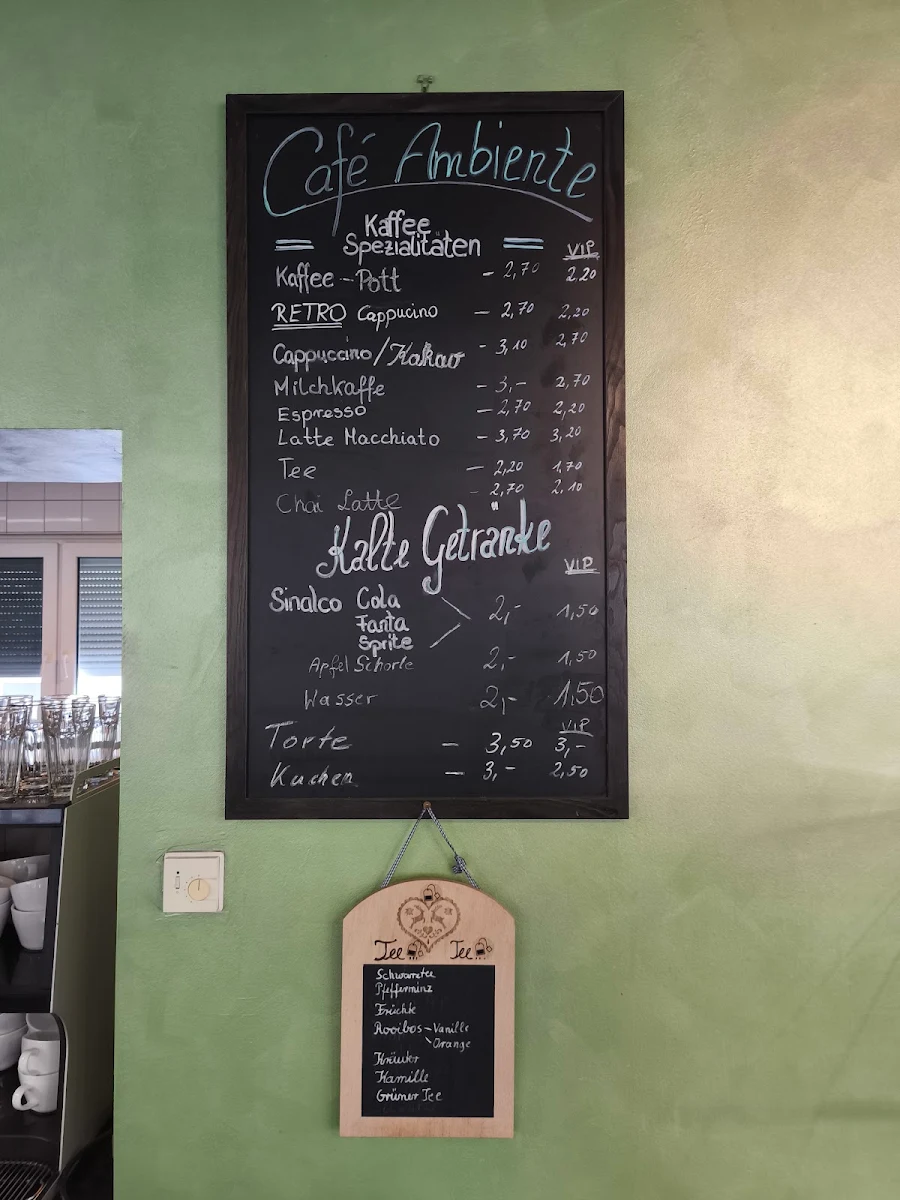 Café Ambiente
Kaffee
Spezialitäten
VIP
Kaffee - Pott - 2,70 2.20
RETRO Cappucino - 2,70 2,20
Cappuccino/Kakao - 3,10 2,70
Milchkaffe - 3,- 2,70
Espresso - 2,70 2,20
Latte Macchiato - 3,70 3,20
Tee - 2,20 1,70
Chai Latte - 2,70 2.10
Kalte Getränke
VIP
Sinalco Cola 2,- 1,50
Fanta
Sprite
Apfel Schorle 2,- 1,50
Wasser 2,- 1,50
VIP
Torte - 3,50 3,-
Kuchen - 3,- 2,50
Tee Tee
Schwarztee
Pfefferminz
Früchte
Rooibos - Vanille
Orange
Kräuter
Kamille
Grüner Tee